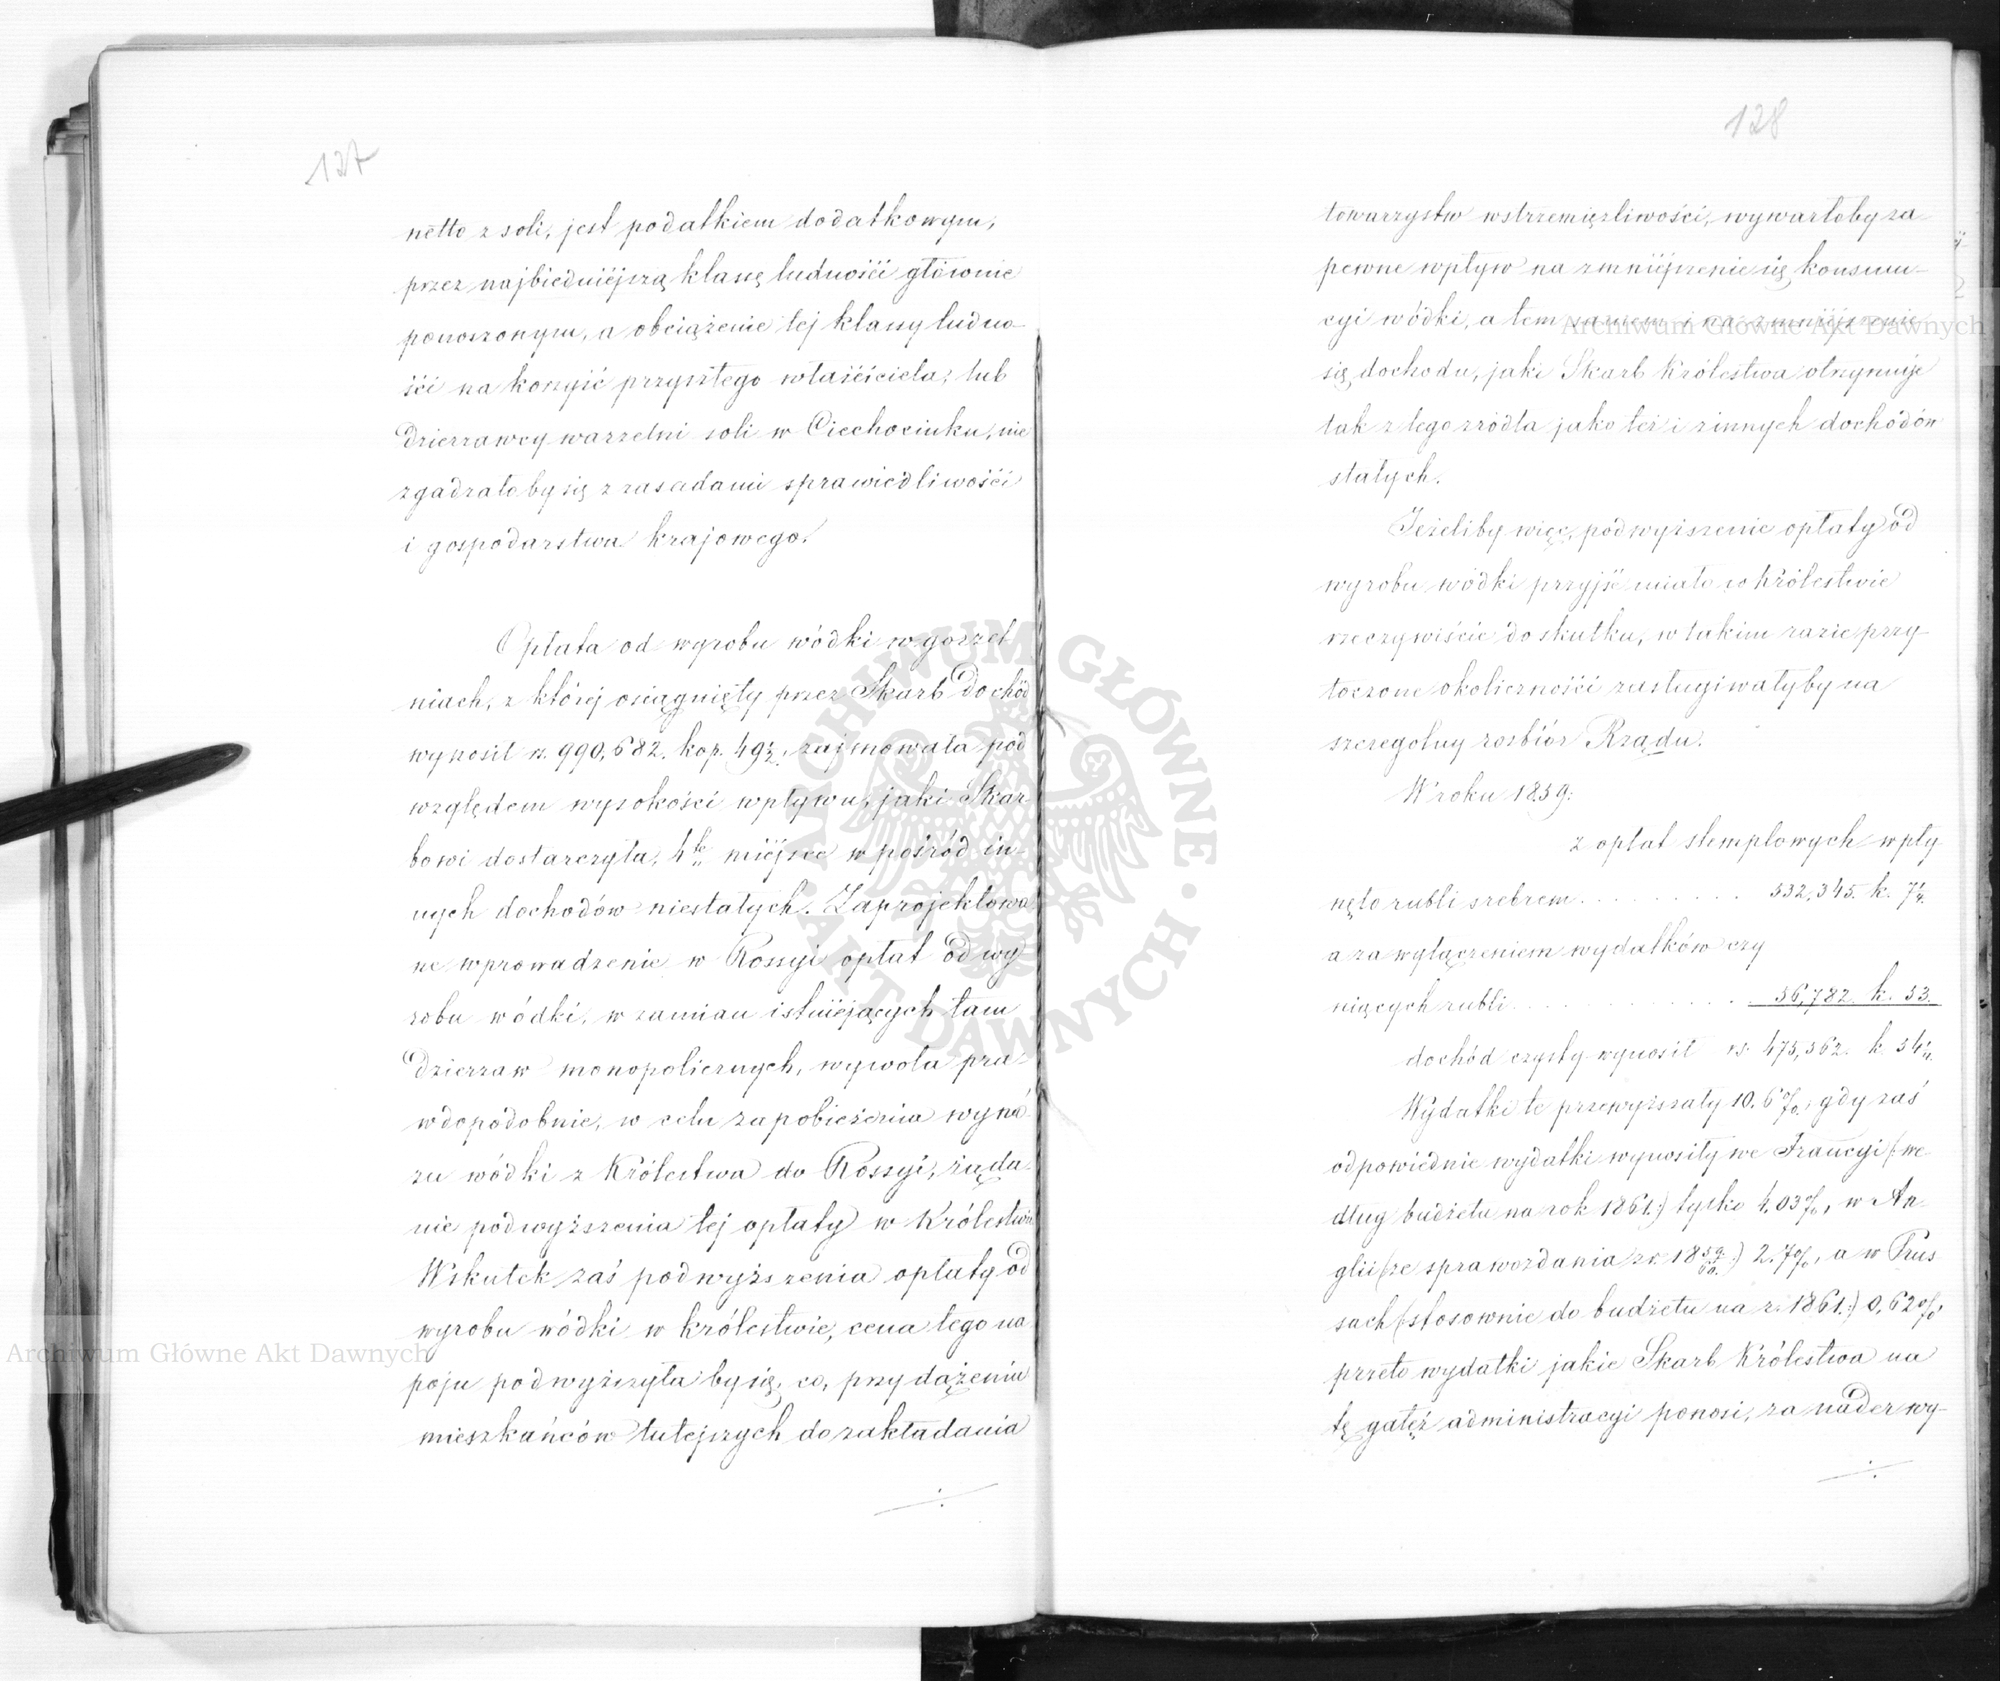 127
netto z soli, jest podatkiem dodatkowym,
przez najbiedniéjszą klassę ludności głównie
ponoszonym, a obciążenie tej klassy ludno-
ści na korzyść przyszłego właściciela, lub
Dzierzawcy warzelni soli w Ciechocinku, nie
zgadzałoby się z zasadami sprawiedliwości
i gospodarstwa krajowego.
Opłata od wyrobu wódki w gorzel
niach, z któréj osiągnięty przez Skarb dochód
wynosił rs. 990,682. kop. 49½, zajmowała pod
względem wysokości wpływu, jaki Skar-
bowi dostarczyła, 4te miéjsce w pośród in-
nych dochodów niestałych. Zaprojektowa
ne wprowadzenie w Rossyi opłat od wy
robu wódki, w zamian istniéjących tam
Dzierzaw monopolicznych, wywoła pra-
wdopodobnie, w celu zapobieżenia wywo
zu wódki z Królestwa do Rossyi, żąda-
nie podwyższenia tej opłaty w Królestwie
Wskutek zaś podwyższenia opłaty od
wyrobu wódki w królestwie, cena tego na
poju podwyższyła by się, co, przy dążeniu
mieszkańców tutejszych do zakładania
128
towarzystw wstrzemięźliwości, wywarłoby za-
pewne wpływ na zmniéjszenie się konsum-
cyi wódki, a tem samem i na zmniéjszenie
się dochodu, jaki Skarb Królestwa otrzymuje
tak z tego zródła jako też i z innych dochódów
stałych.
Jeżeliby więc, podwyższenie opłaty od
wyrobu wódki przyjść miało w Królestwie
rzeczywiście do skutku, w takim razie przy-
toczone okoliczności zasługiwałyby na
szczególny rozbiór Rządu.
W roku 1859:
z opłat stemplowych wpły
nęło rubli srebrem . . . . . . . . . 532,345. k. 7¼.
a za wyłączeniem wydatków czy
niących rubli . . . . . . . . . . . . . 56,782. k. 53.
dochód czysty wynosił rs. 475,562. k. 54¼
Wydatki te przewyższały 10.6%, gdy zaś
odpowiednie wydatki wynosiły we Francyi (:we
dług budżetu na rok 1861:) tylko 4,03%, w An-
glii (ze sprawozdania z r. 1859/60.) 2.7%, a w Prus
sach (stosownie do budżetu na r. 1861.:) 0,62%,
przeto wydatki jakie Skarb Królestwa na
tę gałęź administracyi ponosi, za nader wy-
Archiwum Główne Akt Dawnych
Archiwum Główne Akt Dawnych
ARCHIWUM GŁÓWNE · AKT DAWNYCH ·